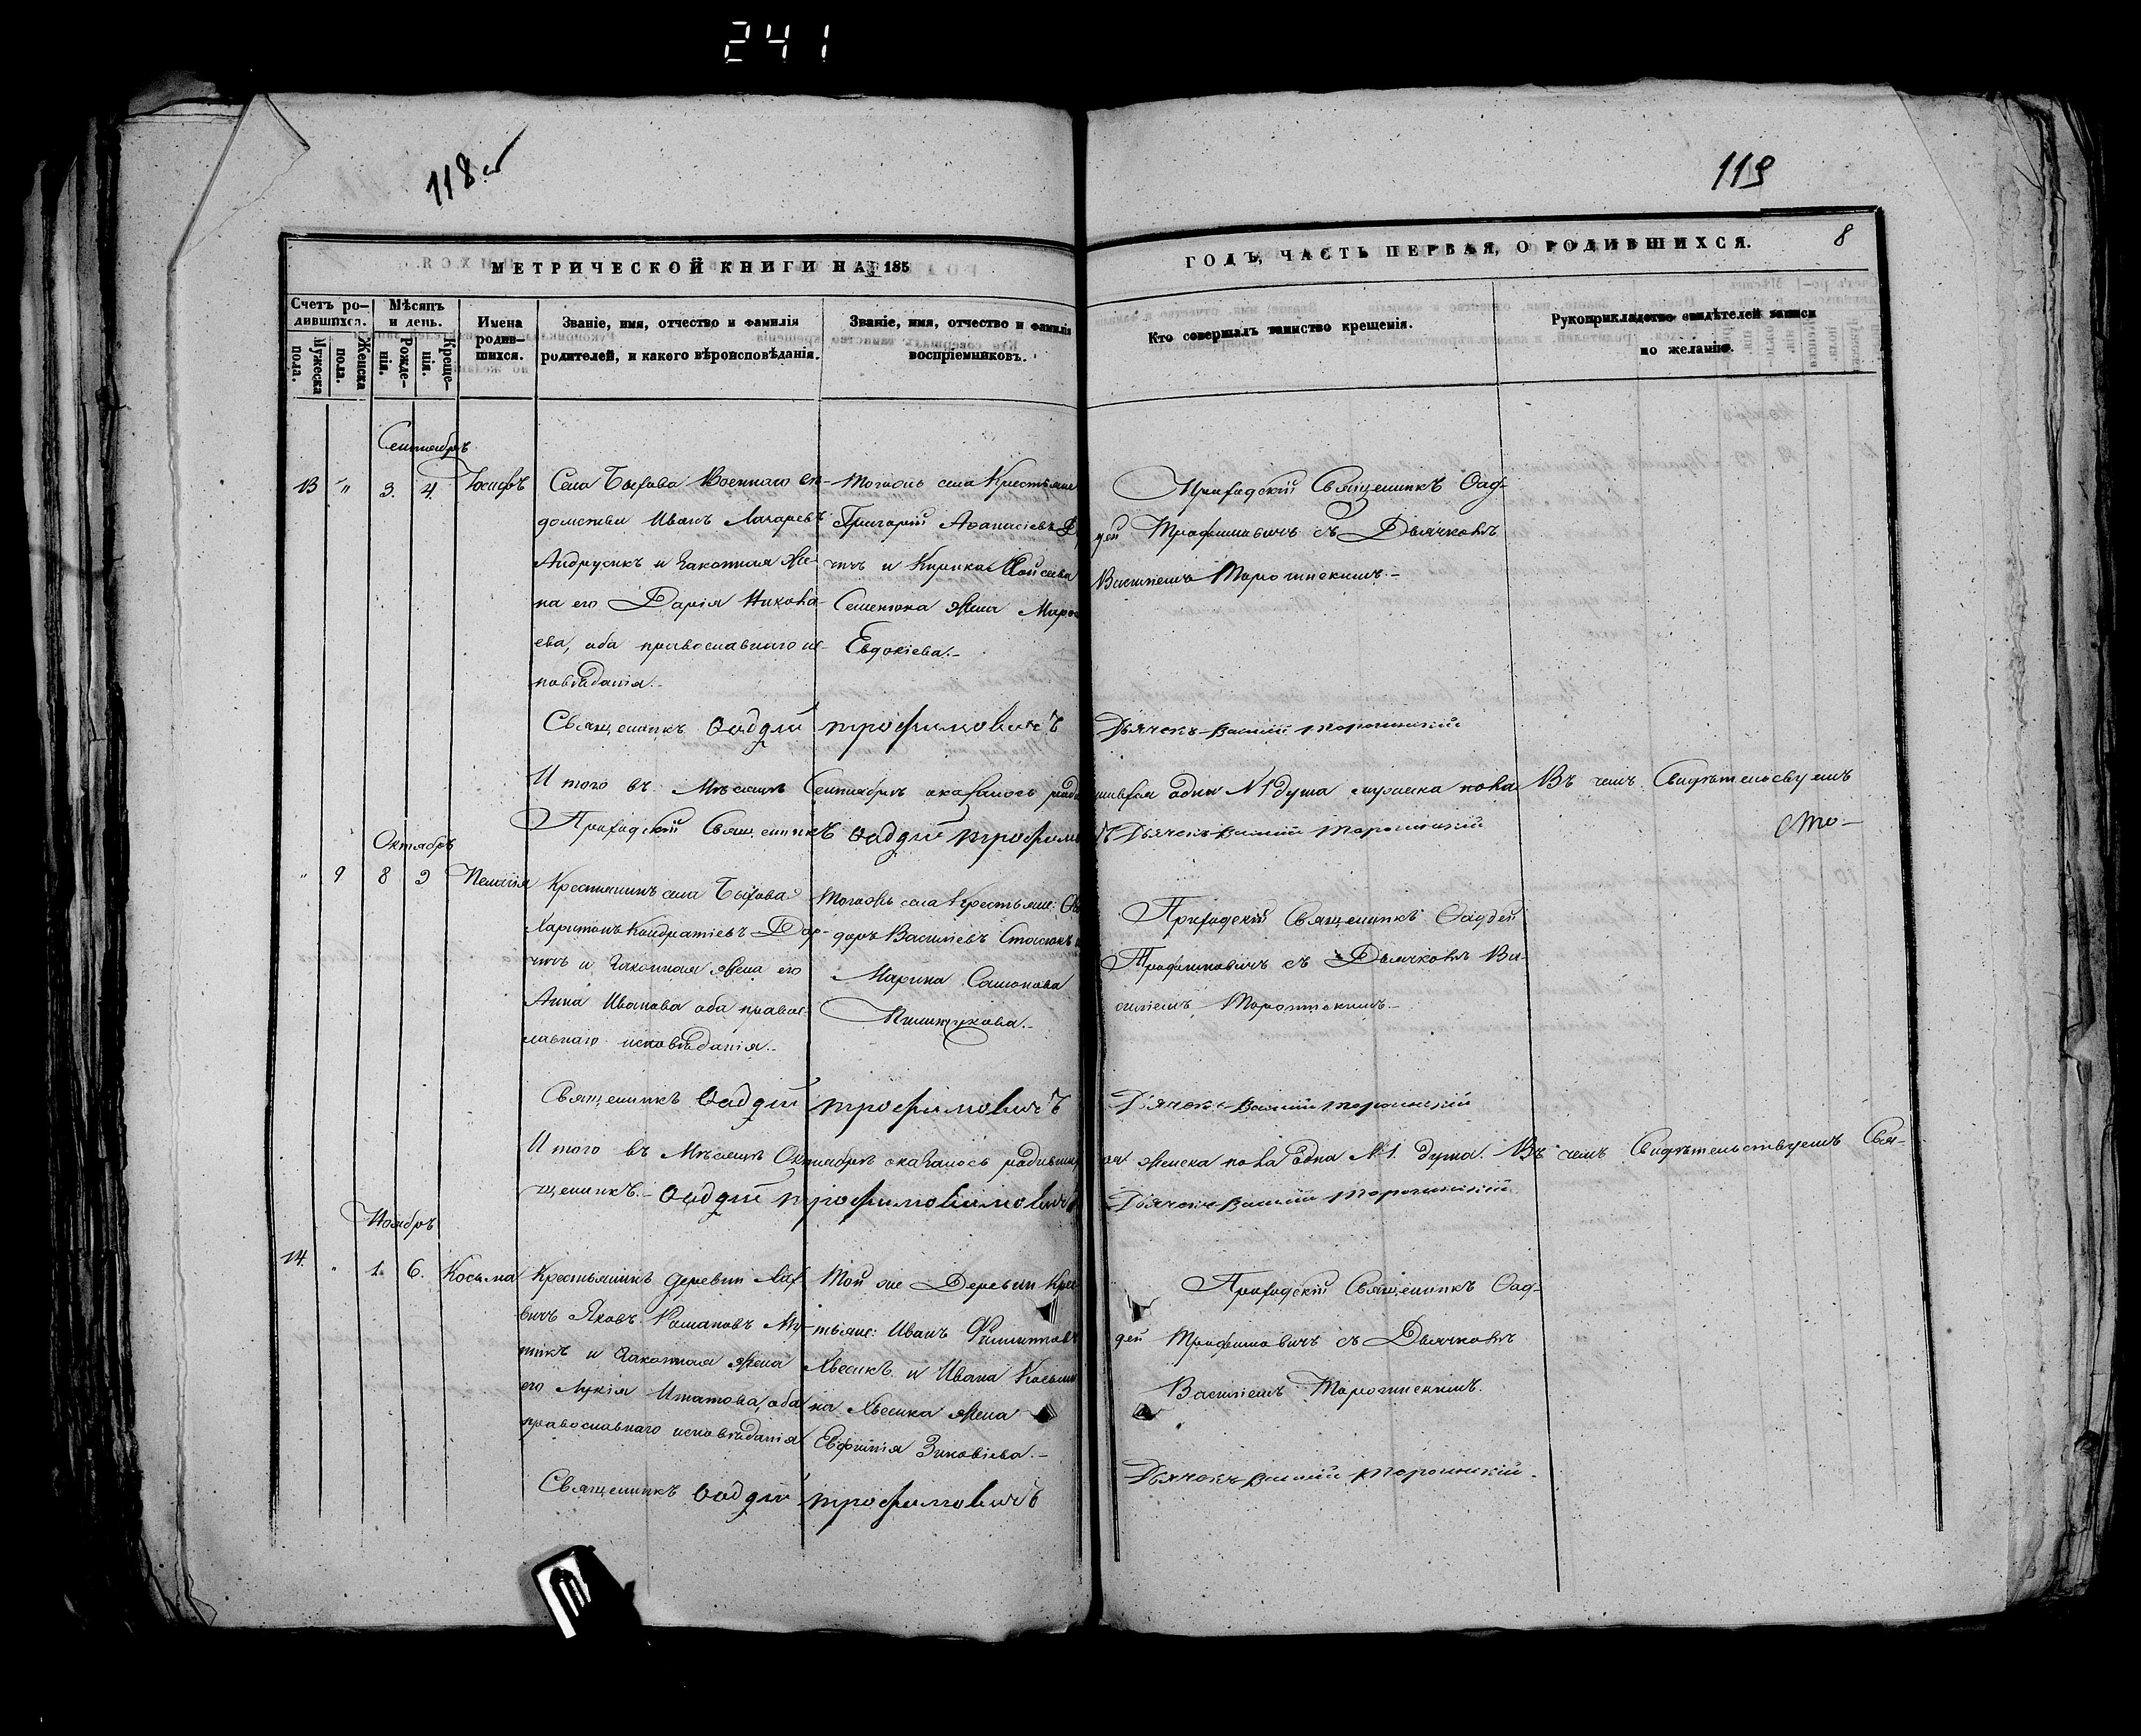 241
118 об
119
МЕТРИЧЕСКОЙ КНИГИ НА 185
ГОДЪ, ЧАСТЬ ПЕРВАЯ, О РОДИВШИХСЯ.
8
Счетъ ро-
дившихся.
Мужеска пола.
Женска пола.
Мѣсяцъ
и день.
Рожде-
нія.
Креще-
нія.
Имена
родив-
шихся.
Званіе, имя, отчество и фамилія
родителей, и какого вѣроисповѣданія.
Званіе, имя, отчество и фамилія
воспріемниковъ.
Кто совершалъ таинство крещенія.
Рукоприкладство свидѣтелей записи
по желанію.
Сентябрь
13 " 3. 4 Іосифъ
Села Быхова Военнаго вѣ-
домства Иванъ Лазаревъ
Андрусикъ и законная же-
на его Дарія Никола-
ева, оба православнаго ис-
повѣданія.-
Тогожъ села Крестьяне
Григорій Аѳанасіевъ
чичъ и Кирика Моисеева
Семенюка жена
Евдокіева.-
Приходскій Священникъ Ѳад-
дей Трофимовичъ съ Дьячкомъ
Василіемъ Торочинскимъ.-
Священникъ Ѳаддей Трофимовичъ
Дьячекъ Василій Торочинскій
Итого въ Мѣсяцѣ Сентябрѣ оказалось родившихся одна №1 душа мужеска пола. Въ чемъ Свидѣтельсвуемъ
Приходскій Священникъ Ѳаддей Трофимовичъ Дьячекъ Василій Торочинскій
Октябрь
" 9 8 9 Пелагія
Крестьянинъ села Быхова
Харитонъ Кондратіевъ Дор-
чичъ и законная жена его
Анна Иванова оба правос-
лавнаго исповѣданія.-
Тогожъ села Крестьяне:
доръ Василіевъ Стасюкъ и
Марина Самонова
Пилипчукова.-
Приходскій Священникъ Ѳаддей
Трофимовичъ съ Дьячкомъ Ва-
силіемъ Торочинскимъ.-
Священникъ Ѳаддей Трофимовичъ
Дьячекъ Василій Торочинскій
Итого въ Мѣсяцѣ Октябрѣ оказалось родившихся женска пола одна №1. душа. Въ чемъ Свидѣтельствуемъ Свя-
щенникъ.- Ѳаддей Дьячекъ Василій Торочинскій
Ноябрь
14. " 1. 6. Косьма
Крестьянинъ деревни
Яковъ Романовъ
и законная жена
его Лукія Игнатова, оба
православнаго исповѣданія
Той же Деревни Крес
тьяне: Иванъ Филиповъ
Хвесикъ и Ивана Косьми
на Хвесика жена
Евфимія Зиновіева.-
Приходскій Священникъ Ѳад-
дей Трофимовичъ съ Дьячкомъ
Василіемъ Торочинскимъ.
Священникъ Ѳаддей Трофимовичъ
Дьячекъ Василій Торочинскій.